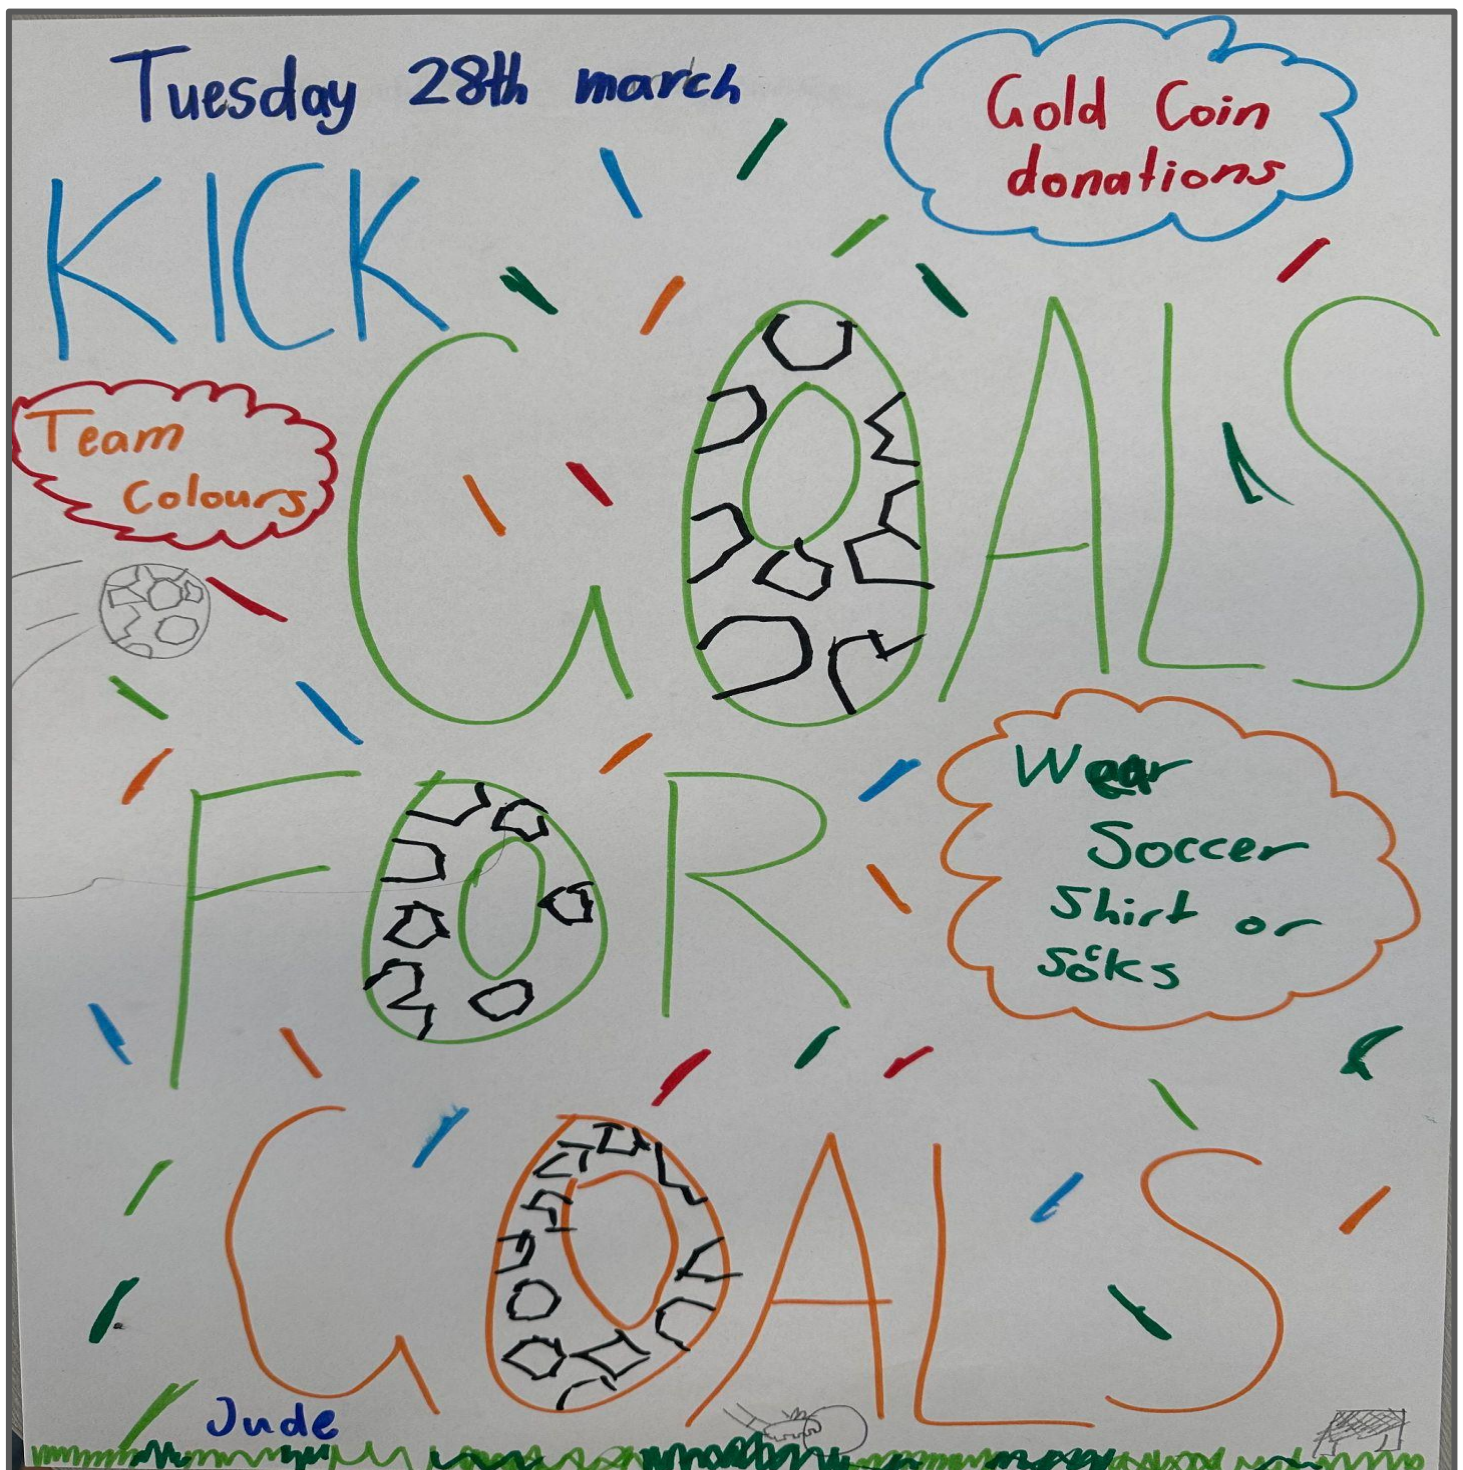 Tuesday 28th march
Gold Coin
donations
KICK
GOALS
Team
Colours
FOR
Wear
Soccer
Shirt or
socks
GOALS
Jude